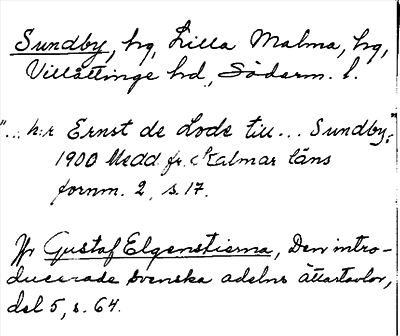 Sundby, hg, Lilla Malma, hg,
Villåttinge hd., Söderm. l.
"... h:r Ernst de Lode till ... Sundby."
1900 Medd. fr. Kalmar läns
fornm. 2, s. 17.
Jfr Gustaf Elgenstierna, Den intro-
ducerade svenska adelns ättartavlor,
del 5, s. 64.